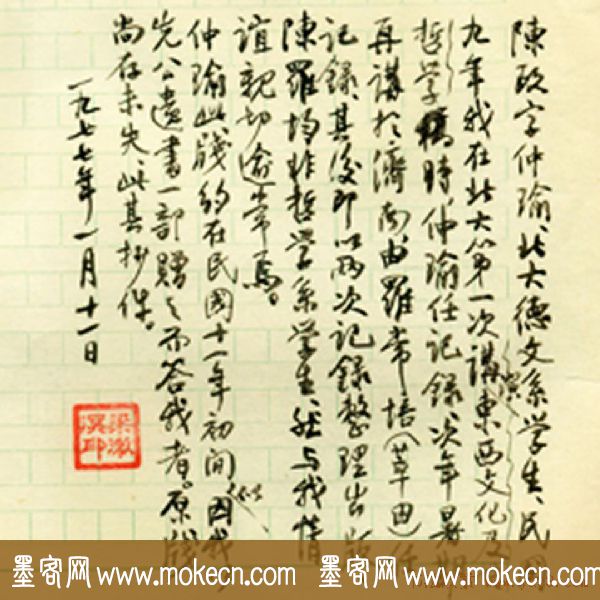 陳政字仲瑜、北大德文系學生、民國
九年我在北大第一次講東西文化及
哲學時、仲瑜任記錄、次年暑期
再講於濟南由羅常培(莘田)任
記錄、其後即以兩次記錄整理出版
陳羅均非哲學系學生、然与我情
誼親切逾常焉。
仲瑜此牋約在民國十一年初間似因我
先公遺書一部贈之而答我者。原牋
尚存未失、此其抄件。
一九七七年一月十一日
梁漱溟印
墨客网 www.mokecn.com 墨客网 www.mokecn.com